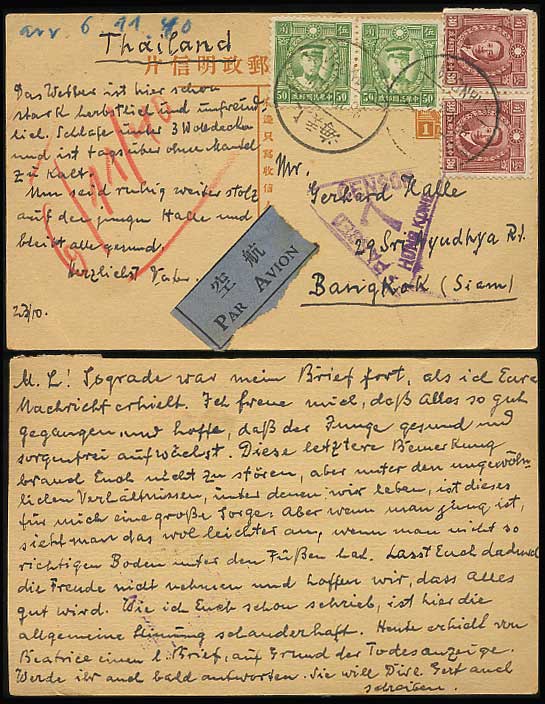 arr. 6 11 40
Thailand
片信明政郵
Das Wetter ist hier schon
stark herbstlich und unfreund-
lich. Schlafe unter 3 Wolldecken
und ist tagsüber ohne Mantel
zu kalt.
Nun seid ruhig weiter stolz
auf den jungen Halle und
bleibt alle gesund.
Herzlichst Vater.
23/10.
50
50
海上
1
Mr.
Gerhard Halle
29 Sri Ayudhya Rd.
Bangkok (Siam)
CENSOR
7
PASSED
HONG KONG
航空
PAR AVION
M. L! Sograde war mein Brief fort, als ich Eure
Nachricht erhielt. Ich freue mich, daß Alles so gut
gegangen, und hoffe, daß der Junge gesund und
sorgenfrei aufwächst. Diese letztere Bemerkung
brauch Euch nicht zu stören, aber unter den ungewöhn-
lichen Verhältnissen, unter denen wir leben, ist dieses
für mich eine große Sorge. Aber wenn man jung ist,
sieht man das wol leichter an, wenn man nicht so
richtigen Boden unter den Füßen hat. Lasst Euch dadurch
die Freude nicht nehmen und hoffen wir, dass Alles
gut wird. Wie ich Euch schon schrieb, ist hier die
allgemeine Stimmung schauderhaft. Heute erhielt von
Beatrice einen l. Brief, auf Grund der Todesanzeige.
Werde ihr auch bald antworten. Sie will Dir l. Gert auch
schreiben.